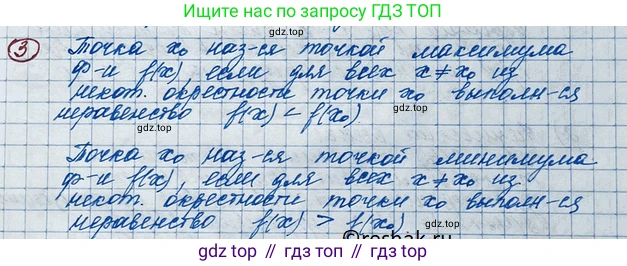 Ищите нас по запросу ГДЗ ТОП
3 Точка x₀ наз-ся точкой максимума
gdz.top
ф-и f(x), если для всех x≠x₀ из
некот. окрестности точки x₀ выполн-ся
неравенство f(x) < f(x₀)
gdz.top
Точка x₀ наз-ся точкой минимума
gdz.top
ф-и f(x), если для всех x≠x₀ из
некот. окрестности точки x₀ выполн-ся
неравенство f(x) > f(x₀)
gdz.top
reshak.ru
гдз топ // гдз топ // гдз топ